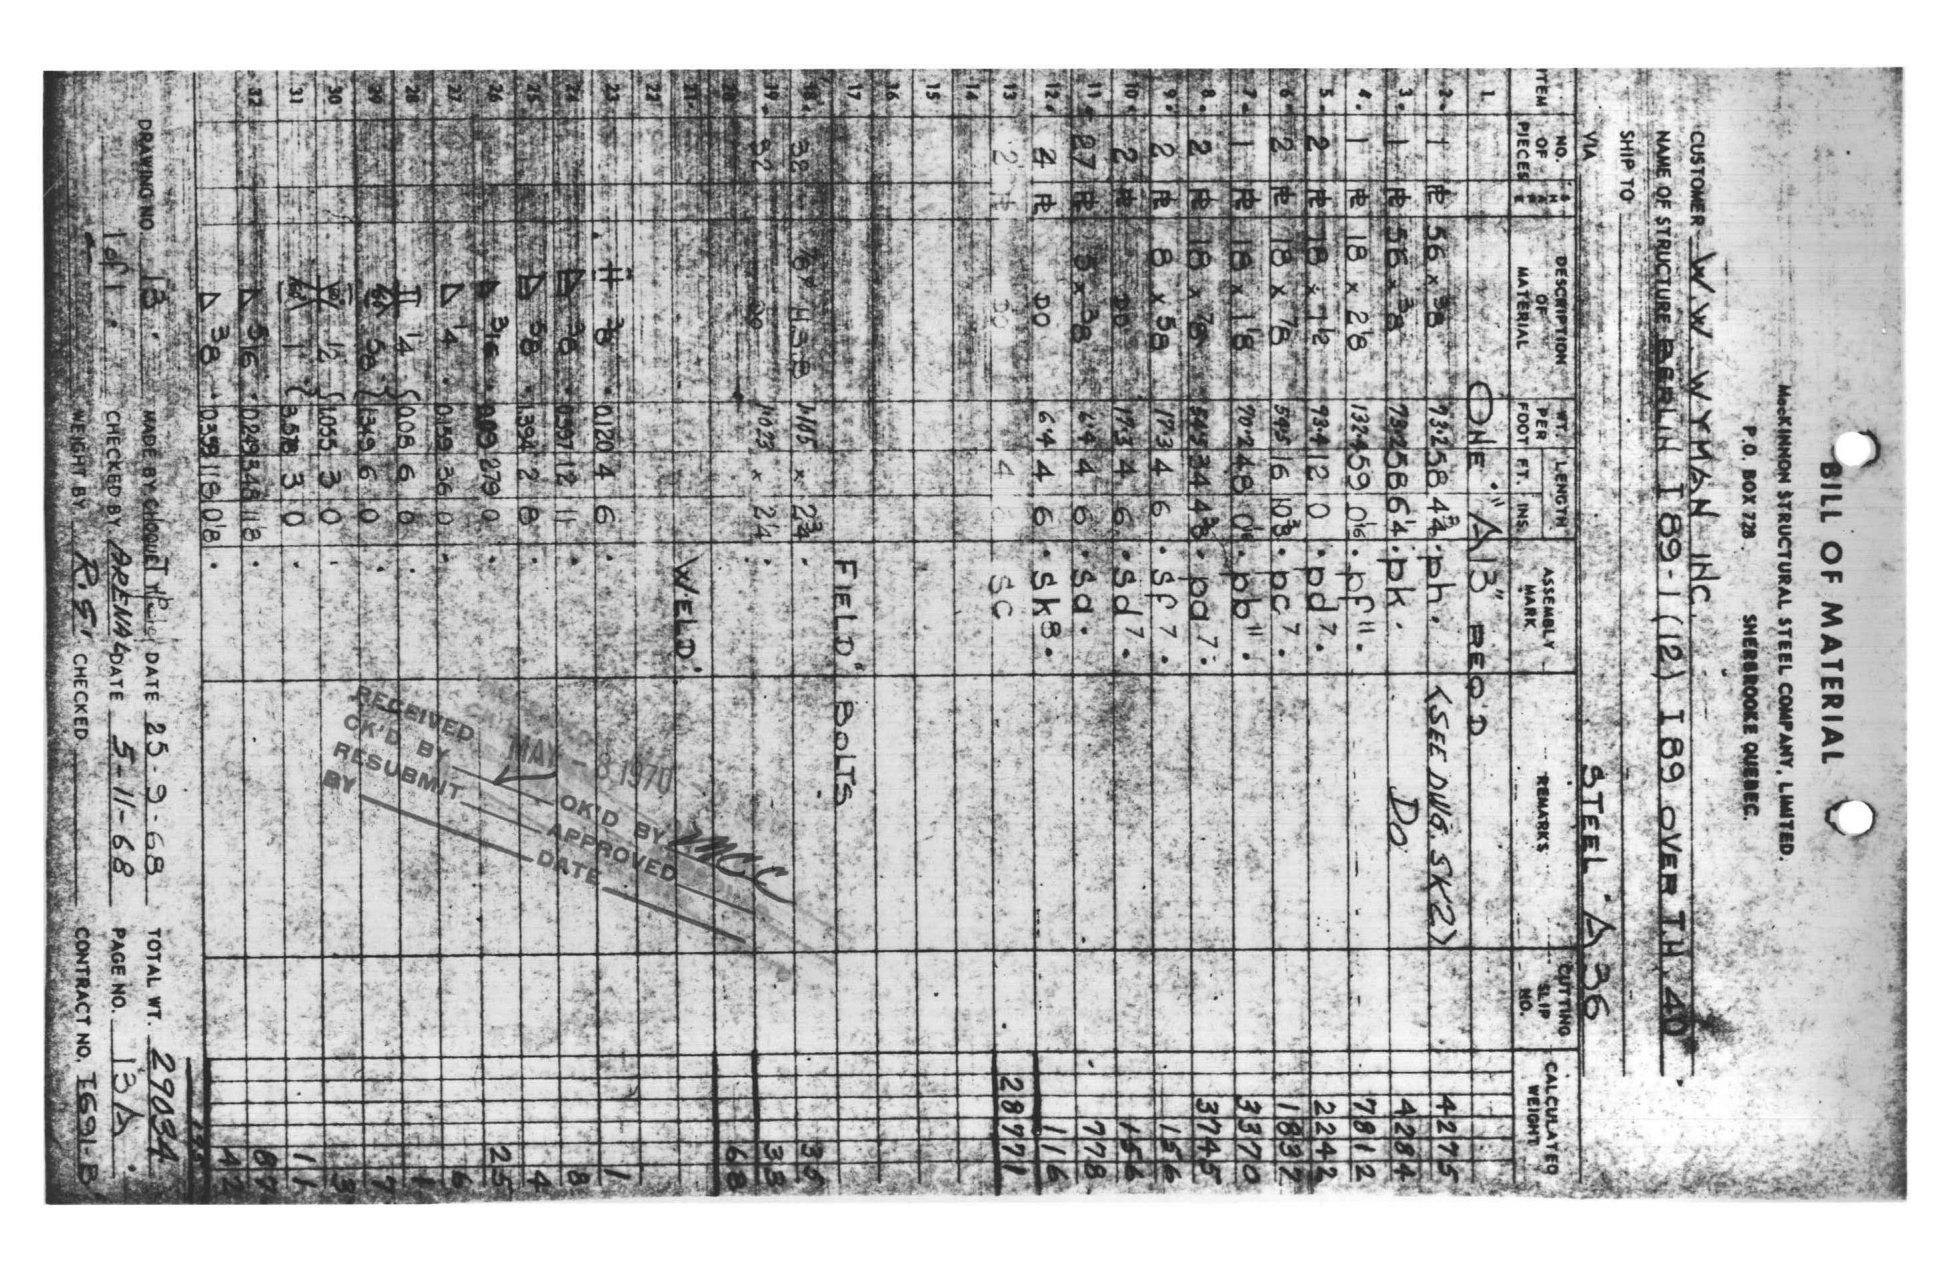 BILL OF MATERIAL
MacKINNON STRUCTURAL STEEL COMPANY, LIMITED.
P.O. BOX 728. SHERBROOKE QUEBEC.
CUSTOMER W.W. WYMAN INC.
NAME OF STRUCTURE BERLIN I 89-1 (12) I 89 OVER T.H. 40
SHIP TO
VIA STEEL A 36
ITEM NO. OF PIECES SHAPE DESCRIPTION OF MATERIAL WT. PER FOOT LENGTH FT. INS. ASSEMBLY MARK REMARKS CUTTING SLIP NO. CALCULATED WEIGHT
1 ONE "A13" REQ'D
2 1 PL 56 x 3/8 73.25 58 4 3/4 ph. (SEE DWG. SK2) 4275
3 1 PL 56 x 3/8 73.25 58 6 1/4 pk. DO 4284
4 1 PL 18 x 2 1/8 132.4 59 0 1/16 pf 11. 7812
5 2 PL 18 x 1 1/2 93.4 12 0 pd 7. 2242
6 2 PL 18 x 7/8 54.5 16 10 3/8 pc 7. 1837
7 1 PL 18 x 1 1/8 70.2 48 0 1/16 pb 11. 3370
8 2 PL 18 x 7/8 54.5 34 4 3/8 pa 7. 3745
9 2 PL 8 x 5/8 17.3 4 6 sf 7. 156
10 2 PL DO 17.3 4 6 sd 7. 156
11 27 PL 5 x 3/8 6.4 4 6 sa. 778
12 4 PL DO 6.4 4 6 sk 8. 116
13 2 DO 4 SC 28771
14
15
16
17 FIELD BOLTS
18 32 7/8 φ H.S.B 1.115 x 2 3/4
19 32 DO x 2 1/4 33
20 68
21 WELD
22
23 3/8 .0120 4 6 1
24 3/8 12 11 8
25 5/8 .394 2 8 4
26 5/16 279 0 25
27 1/4 .159 36 0 6
28 1/4 .008 6 0 1
29 5/8 1.349 6 0 7
30 1/2 .055 3 0 3
31 1 3.578 3 0 11
32 5/16 .0249 348 11 8 87
3/8 .0359 118 0 1/8 42
DRAWING NO. 13. MADE BY CHOQUETTE DATE 25-9-68 TOTAL WT. 29034
1 of 1. CHECKED BY ARENAL DATE 5-11-68 PAGE NO. 13A
WEIGHT BY R.S. CHECKED CONTRACT NO. T691-B
RECEIVED MAY - 8 1970
OK'D BY OK'D BY
RESUBMIT APPROVED
BY DATE